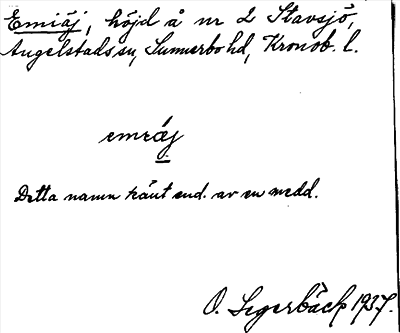 Emiäj, höjd å nr 2 Stavsjö,
Angelstads sn, Sunnerbo hd, Kronob. l.
emräj
Detta namn känt end. av en medd.
O. Segerbäck 1937.